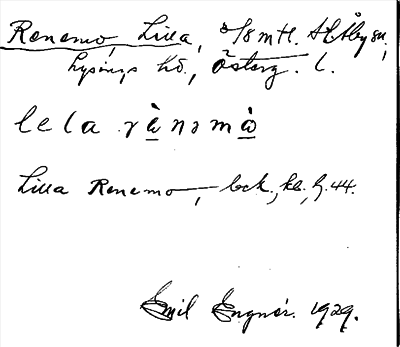 Renemo, Lilla, 3/8 mtl. St. Åby sn,
Lysings hd., Österg. l.
lela rènəmò
Lilla Renemo, — bek., kb., J. 44.
Emil Engnér. 1929.